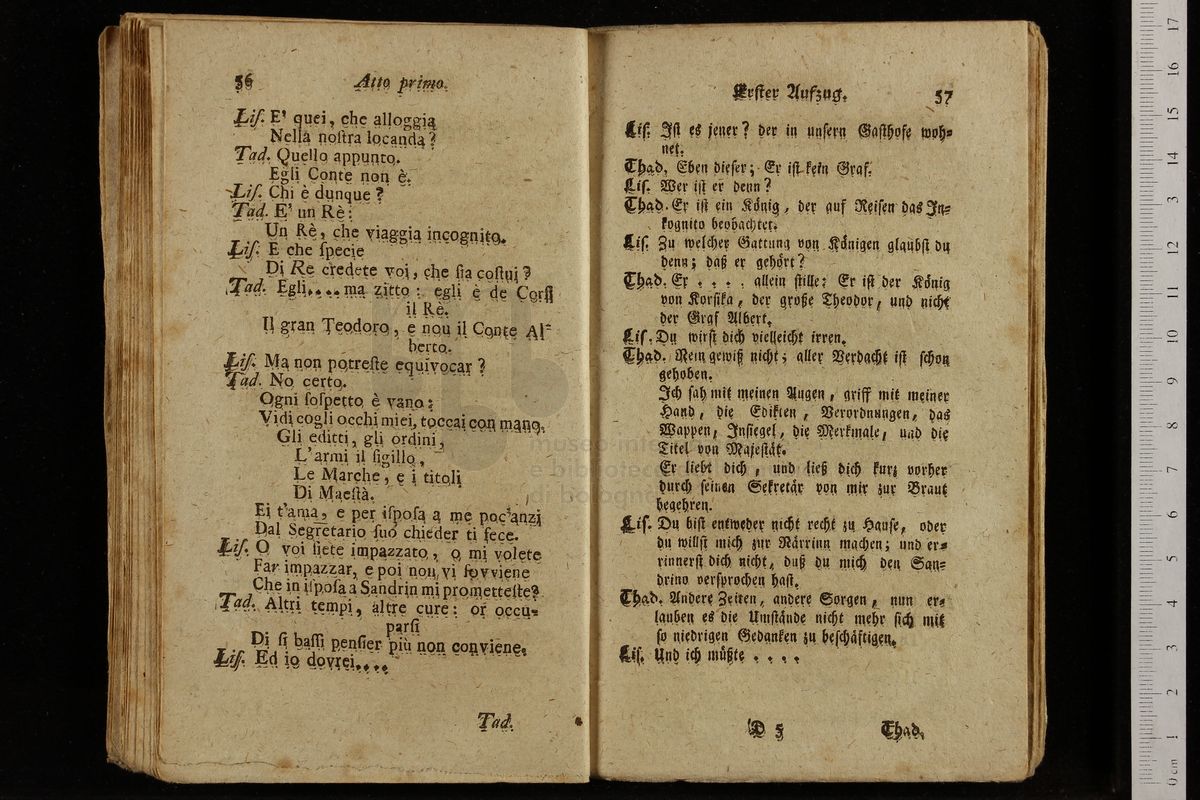 56 Atto primo.
Liſ. E' quei, che alloggia
Nella noſtra locanda?
Tad. Quello appunto.
Egli Conte non è.
Liſ. Chi è dunque?
Tad. E' un Rè:
Un Rè, che viaggia incognito.
Liſ. E che ſpecie
Di Re credete voi, che ſia coſtui?
Tad. Egli.... ma zitto: egli è de Corſi
il Rè.
Il gran Teodoro, e non il Conte Al-
berto.
Liſ. Ma non potreſte equivocar?
Tad. No certo.
Ogni ſoſpetto è vano:
Vidi cogli occhi miei, toccai con mano,
Gli editti, gli ordini,
L'armi il ſigillo,
Le Marche, e i titoli
Di Maeſtà.
Ei t'ama, e per iſpoſa a me poc'anzi
Dal Segretario ſuo chieder ti fece.
Liſ. O voi ſiete impazzato, o mi volete
Far impazzar, e poi non vi ſovviene
Che in iſpoſa a Sandrin mi prometteſte?
Tad. Altri tempi, altre cure: or occu-
parſi
Di ſi baſſi penſier più non conviene.
Liſ. Ed io dovrei....
Tad.
Erſter Aufzug. 57
Liſ. Iſt es jener? der in unſern Gaſthofe woh-
net.
Thad. Eben dieſer; Er iſt kein Graf.
Liſ. Wer iſt er denn?
Thad. Er iſt ein König, der auf Reiſen das In-
kognito beobachtet.
Liſ. Zu welcher Gattung von Königen glaubſt du
denn; daß er gehört?
Thad. Er . . . . allein ſtille: Er iſt der König
von Korſika, der große Theodor, und nicht
der Graf Albert.
Liſ. Du wirſt dich vielleicht irren.
Thad. Nein gewiß nicht; aller Verdacht iſt ſchon
gehoben.
Ich ſah mit meinen Augen, griff mit meiner
Hand, die Edikten, Verordnungen, das
Wappen, Inſiegel, die Merkmale, und die
Titel von Majeſtät.
Er liebt dich, und ließ dich kurz vorher
durch ſeinen Sekretär von mir zur Braut
begehren.
Liſ. Du biſt entweder nicht recht zu Hauſe, oder
du willſt mich zur Närrinn machen; und er-
rinnerſt dich nicht, daß du mich den San-
drino verſprochen haſt.
Thad. Andere Zeiten, andere Sorgen, nun er-
lauben es die Umſtände nicht mehr ſich mit
ſo niedrigen Gedanken zu beſchäftigen.
Liſ. Und ich müßte . . . .
D 5 Thad.